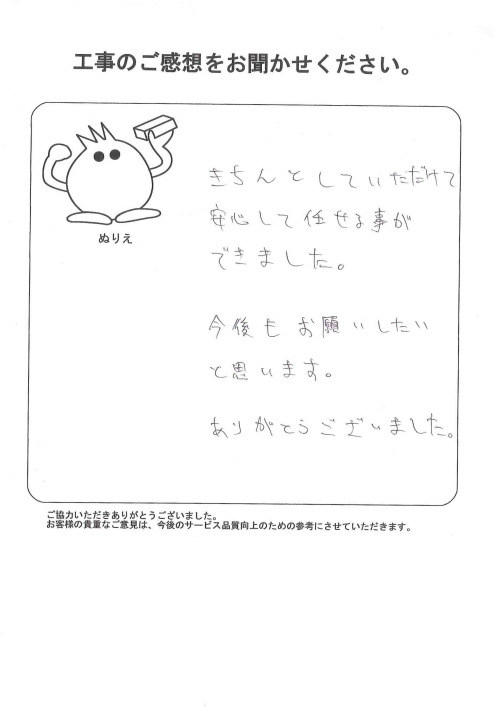 工事のご感想をお聞かせください。
ぬりえ
きちんとしていただけて
安心して任せる事が
できました。
今後もお願いしたい
と思います。
ありがとうございました。
ご協力いただきありがとうございました。
お客様の貴重なご意見は、今後のサービス品質向上のための参考にさせていただきます。